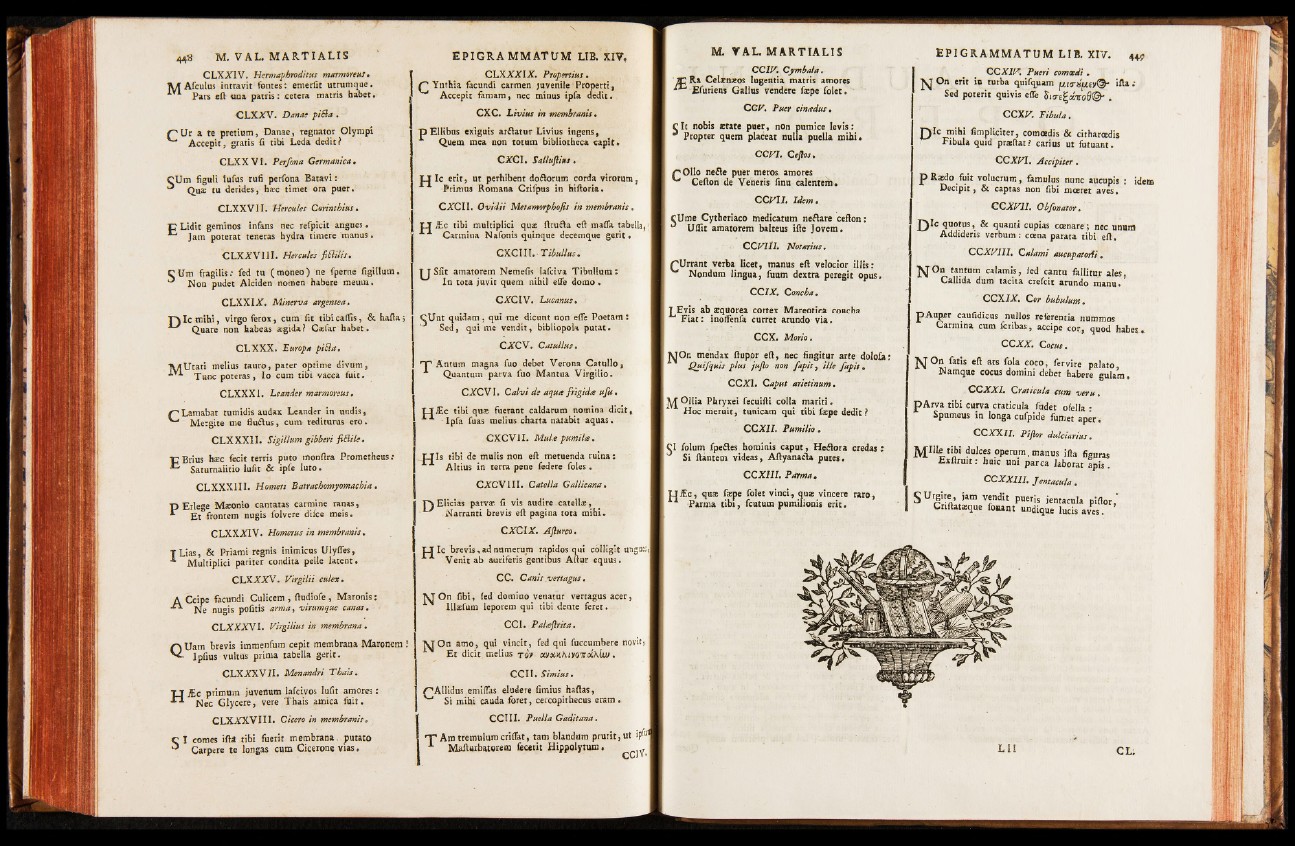 448 M. VAL. MARTIALIS
CLXXIV. Hermaphroditus marmoreus.
MAſculus intravit fontes: emerſit utrumque.
Pars eſt una patris: cetera matris habet.
CLXXV. Danae picta.
CUr a te pretium, Danae, regnator Olympi
Accepit, gratis ſi tibi Leda dedit?
CLXXVI. Perſona Germanica.
SUm figuli luſus ruſi perſona Batavi:
Quæ tu derides, hæc timet ora puer.
CLXXVII. Hercules Corinthius.
ELidit geminos infans nec reſpicit angues.
Jam poterat teneras hydra timere manus.
CLXXVIII. Hercules fictilis.
SUm fragilis: ſed tu (moneo) ne ſperne ſigillum.
Non pudet Alciden nomen habere meum.
CLXXIX. Minerva argentea.
DIc mihi, virgo ferox, cum ſit tibi caſſis, & haſta;
Quare non habeas ægida? Cæſar habet.
CLXXX. Europa picta.
MUtari melius tauro, pater optime divum,
Tunc poteras, Io cum tibi vacca fuit.
CLXXXI. Leander marmoreus.
CLamabat tumidis audax Leander in undis,
Mergite me fluctus, cum rediturus ero.
CLXXXII. Sigillum gibberi fictile.
EBrius hæc fecit terris puto monſtra Prometheus:
Saturnalitio luſit & ipſe luto.
CLXXXIII. Homeri Batrachomyomachia.
PErlege Mæonio cantatas carmine ranas,
Et frontem nugis ſolvere diſce meis.
CLXXXIV. Homerus in membranis.
ILias, & Priami regnis inimicus Ulyſſes,
Multiplici pariter condita pelle latent.
CLXXXV. Virgilii culex.
ACcipe facundi Culicem, ſtudioſe, Maronis:
Ne nugis poſitis arma, virumque canas.
CLXXXVI. Virgilius in membrana.
QUam brevis immenſum cepit membrana Maronem!
Ipſius vultus prima tabella gerit.
CLXXXVII. Menandri Thais.
HÆc primum juvenum laſcivos luſit amores:
Nec Glycere, vere Thais amica fuit.
CLXXXVIII. Cicero in membranis.
SI comes iſta tibi fuerit membrana putato
Carpere te longas cum Cicerone vias.
EPIGRAMMATUM LIB. XIV.
CLXXXIX. Propertius.
CYnthia facundi carmen juvenile Properti,
Accepit famam, nec minus ipſa dedit.
CXC. Livius in membranis.
PEllibus exiguis arctatur Livius ingens,
Quem mea non totum bibliotheca capit.
CXCI. Salluſtius.
HIc erit, ut perhibent doctorum corda virorum,
Primus Romana Criſpus in hiſtoria.
CXCII. Ovidii Metamorphoſis in membranis.
HÆc tibi multiplici quæ ſtructa eſt maſſa tabella,
Carmina Naſonis quinque decemque gerit.
CXCIII. Tibullus.
USſit amatorem Nemeſis laſciva Tibullum:
In tota juvit quem nihil eſſe domo.
CXCIV. Lucanus.
SUnt quidam, qui me dicunt non eſſe Poetam:
Sed, qui me vendit, bibliopola putat.
CXCV. Catullus.
TAntum magna ſuo debet Verona Catullo,
Quantum parva ſuo Mantua Virgilio.
CXCVI. Calvi de aquæ frigidæ uſu.
HÆc tibi quæ fuerant caldarum nomina dicit,
Ipſa ſuas melius charta natabit aquas.
CXCVII. Mulæ pumilæ.
HIs tibi de mulis non eſt metuenda ruina:
Altius in terra pene ſedere ſoles.
CXCVIII. Catella Gallicana.
DElicias parvæ ſi vis audire catellæ,
Narranti brevis eſt pagina tota mihi.
CXCIX. Aſturco.
HIc brevis, ad numerum rapidos qui colligit ungues,
Venit ab auriferis gentibus Aſtur equus.
CC. Canis vertagus.
NOn ſibi, ſed domino venatur vertagus acer,
Illæſum leporem qui tibi dente feret.
CCI. Palæſtrita.
NOn amo, qui vincit, ſed qui ſuccumbere novit,
Et dicit melius τὸν ἀνακλινοπάλην.
CCII. Simius.
CAllidus emiſſas eludere ſimius haſtas,
Si mihi cauda foret, cercopithecus eram.
CCIII. Puella Gaditana.
TAm tremulum criſſat, tam blandum prurit, ut ipſum
Maſturbatorem fecerit Hippolytum.
CCIV.
M. VAL. MARTIALIS
CCIV. Cymbala.
ÆRa Celænæos lugentia matris amores
Eſuriens Gallus vendere ſæpe ſolet.
CCV. Puer cinædus.
SIt nobis ætate puer, non pumice levis:
Propter quem placeat nulla puella mihi.
CCVI. Ceſtos.
COllo necte puer meros amores
Ceſton de Veneris ſinu calentem.
CCVII. Idem.
SUme Cytheriaco medicatum nectare ceſton:
Uſſit amatorem balteus iſte Jovem.
CCVIII. Notarius.
CUrrant verba licet, manus eſt velocior illis:
Nondum lingua, ſuum dextra peregit opus.
CCIX. Concha.
LEvis ab æquorea cortex Mareotica concha
Fiat: inoffenſa curret arundo via.
CCX. Morio.
NOn mendax ſtupor eſt, nec fingitur arte doloſa:
Quiſquis plus juſto non ſapit, ille ſapit.
CCXI. Caput arietinum.
MOllia Phryxei ſecuiſti colla mariti.
Hoc meruit, tunicam qui tibi ſæpe dedit?
CCXII. Pumilio.
SI ſolum ſpectes hominis caput, Hectora credas:
Si ſtantem videas, Aſtyanacta putes.
CCXIII. Parma.
HÆc, quæ ſæpe ſolet vinci, quæ vincere raro,
Parma tibi, ſcutum pumilionis erit.
EPIGRAMMATUM LIB. XIV. 449
CCXIV. Pueri comœdi.
NOn erit in turba quiſquam μισούμενος iſta:
Sed poterit quivis eſſe δὶς ἐξαπατῶν.
CCXV. Fibula.
DIc mihi ſimpliciter, comœdis & citharœdis
Fibula quid præſtat? carius ut futuant.
CCXVI. Accipiter.
PRædo fuit volucrum, famulus nunc aucupis: idem
Decipit, & captas non ſibi mœret aves.
CCXVII. Obſonator.
DIc quotus, & quanti cupias cœnare; nec unum
Addideris verbum: cœna parata tibi eſt.
CCXVIII. Calami aucupatorii.
NOn tantum calamis, ſed cantu fallitur ales,
Callida dum tacita creſcit arundo manu.
CCXIX. Cor bubulum.
PAuper cauſidicus nullos referentia nummos
Carmina cum ſcribas, accipe cor, quod habes.
CCXX. Cocus.
NOn ſatis eſt ars ſola coco, ſervire palato,
Namque cocus domini debet habere gulam.
CCXXI. Craticula cum veru.
PArva tibi curva craticula ſudet ofella:
Spumeus in longa cuſpide fumet aper.
CCXXII. Piſtor dulciarius.
MIlle tibi dulces operum manus iſta figuras
Exſtruit: huic uni parca laborat apis.
CCXXIII. Jentacula.
SUrgite, jam vendit pueris jentacula piſtor,
Criſtatæque ſonant undique lucis aves.
Lll
CL.